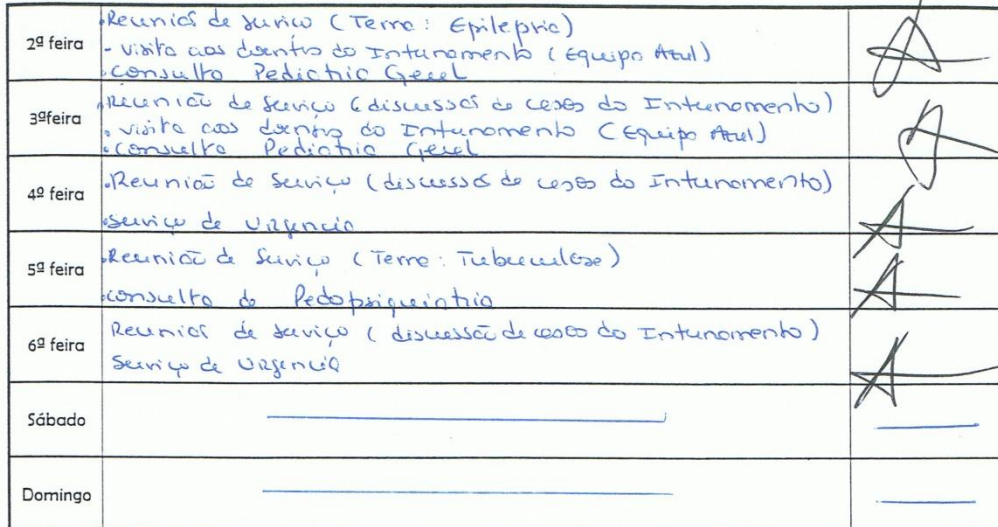 2ª feira
.Reunião de serviço (Tema: Epilepsia)
- visita aos doentes do Internamento (Equipa Azul)
.consulta Pediatria Geral
3ªfeira
.Reunião de Serviço (discussão de casos do Internamento)
. visita aos doentes do Internamento (Equipa Azul)
.consulta Pediatria Geral
4ª feira
.Reunião de Serviço (discussão de casos do Internamento)
.serviço de Urgência
5ª feira
.Reunião de Serviço (Tema: Tuberculose)
.consulta de Pedopsiquiatria
6ª feira
Reunião de serviço (discussão de casos do Internamento)
Serviço de Urgência
Sábado
Domingo